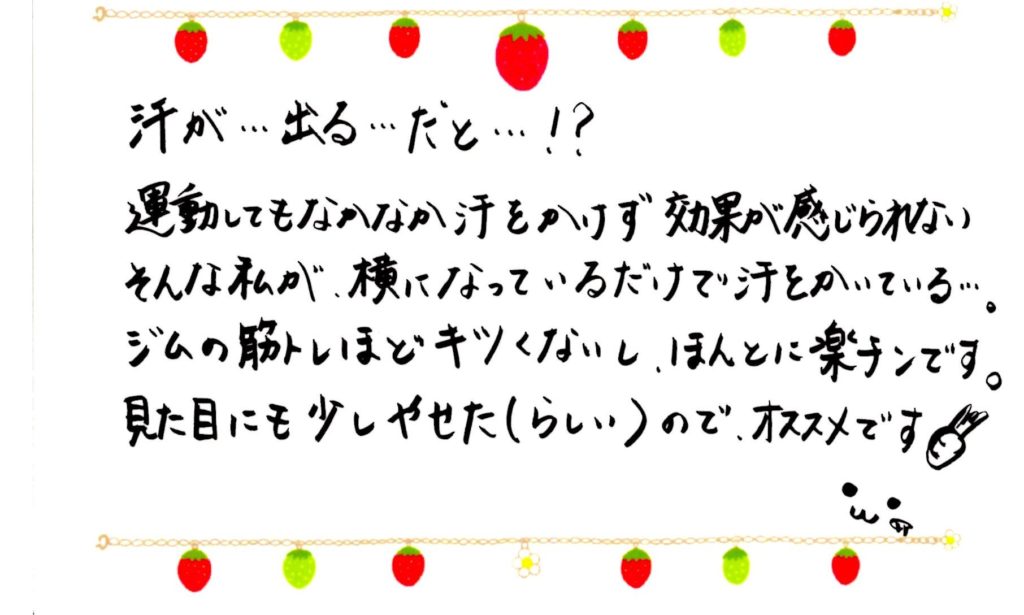 汗が…出る…だと…!?
運動してもなかなか汗をかけず効果が感じられない
そんな私が、横になっているだけで汗をかいている…。
ジムの筋トレほどキツくないし、ほんとに楽チンです。
見た目にも少しやせた(らしい)ので、オススメです